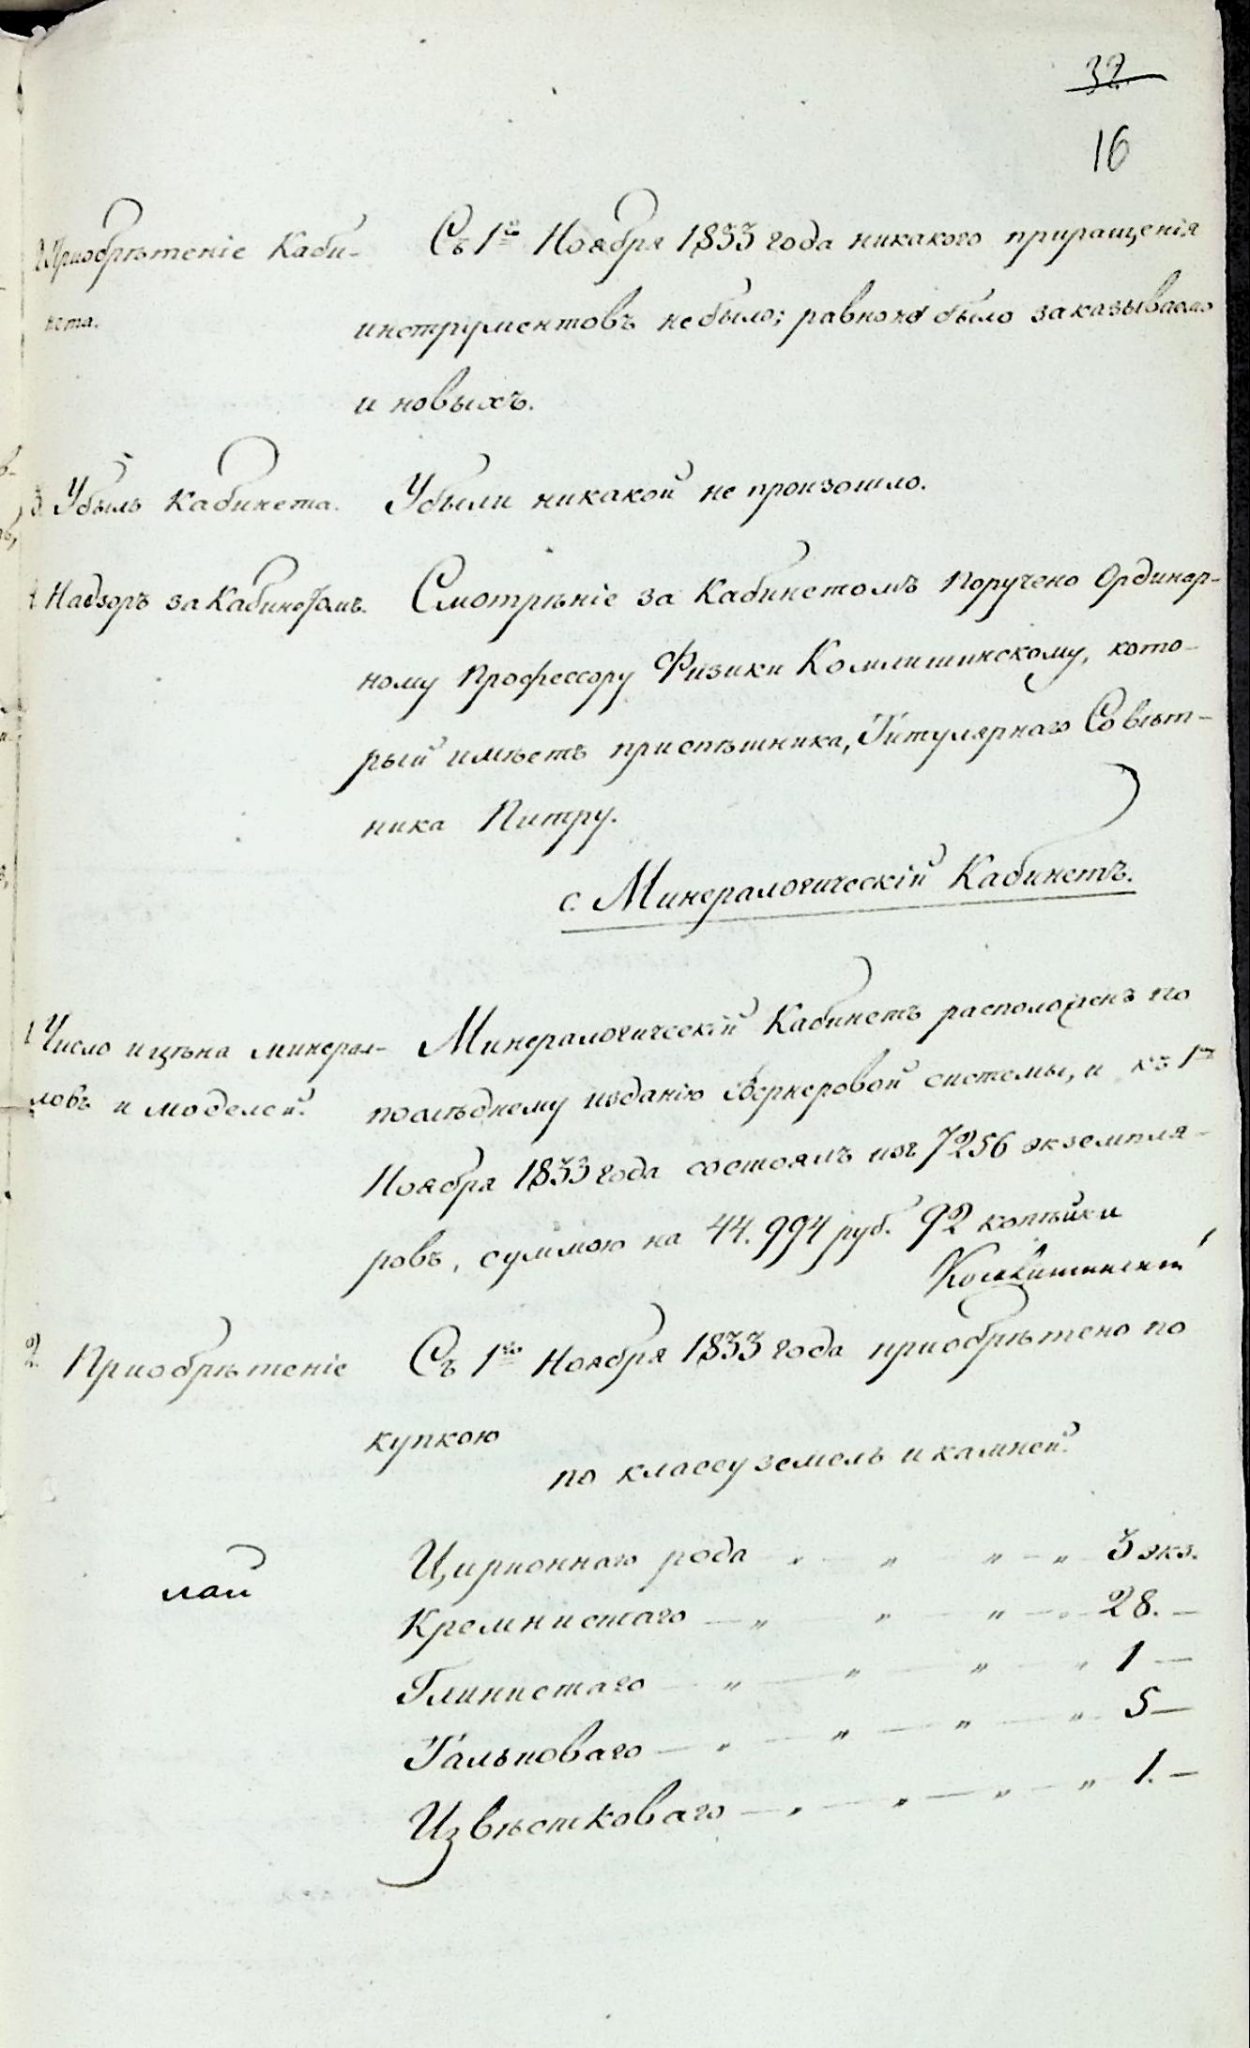 32
16
2. Приобрѣтеніе Каби-
нета.
Съ 1го Ноября 1833 года никакого приращенія
инструментовъ небыло; равно не было заказываемо
и новыхъ.
3. Убыль Кабинета.
Убыли никакой не произошло.
4. Надзоръ за Кабинетомъ.
Смотрѣніе за Кабинетомъ поручено Ординар-
ному Профессору Физики Комлишинскому, кото-
рый имѣетъ приспѣшника, Титулярнаго Совѣт-
ника Питру.
с. Минералогическій Кабинетъ.
1. Число и цѣна минера-
ловъ и моделей.
Минералогическій Кабинетъ расположенъ по
послѣднему изданію Вернеровой системы, и къ 1му
Ноября 1833 года состоялъ изъ 7256 экземпля-
ровъ, суммою на 44.994 руб. 92 копѣйки
Комлишинскій
2. Приобрѣтеніе
Съ 1го Ноября 1833 года приобрѣтено по
купкою
по классу земель и камней.
Цирконнаго рода - „ - „ - „ - „ 3 экз.
Кремнистаго - „ - „ - „ - „ 28. -
Глинистаго - „ - „ - „ - „ 1 -
Тальковаго - „ - „ - „ - „ 5 -
Извѣстковаго - „ - „ - „ - „ 1. -